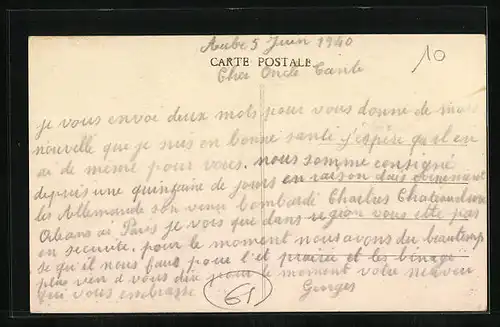 Aube 5 Juin 1940
10
CARTE POSTALE
Cher Oncle Tante
je vous envoi deux mots pour vous donne de mes
nouvelle que je suis en bonne santé j'espère qu'il en
ai de meme pour vous. nous somme consigné
depuis une quinzaine de jours en raison dais évènement
les Allemands son venu bombardé Chartres Chateaudun
Orleans ai Paris je vois que dans region vous ete pas
en securite. pour le moment nous avons du beau temp
se qu'il nous faus pour l'et prairie et les binage
plus rien a vous dire pour le moment votre neuveu
qui vous embrasse Georges
61